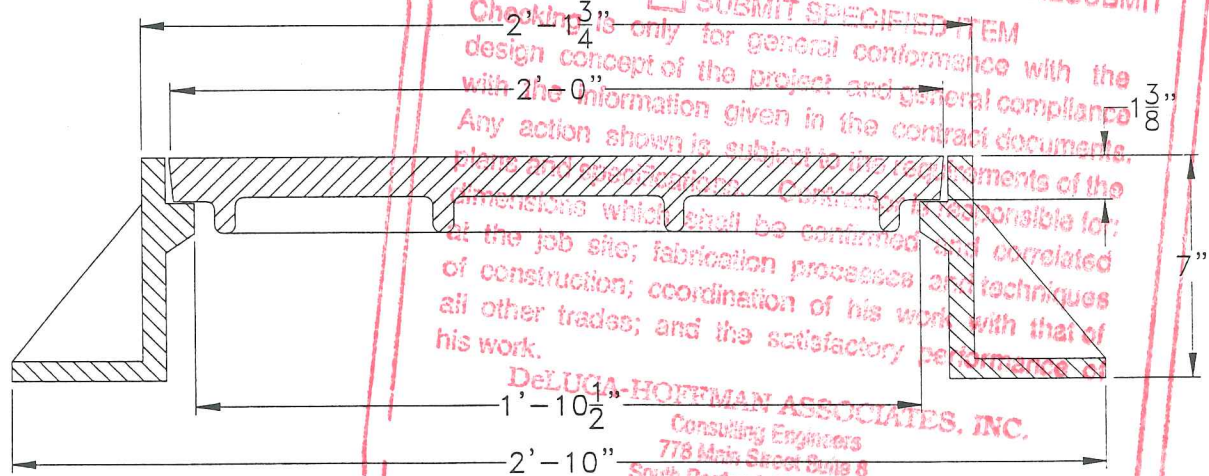 SUBMIT SPECIFIED ITEM
2'-1 3/4"
Checking is only for general conformance with the
design concept of the project and general compliance
2'-0"
with the information given in the contract documents.
1 3/8"
Any action shown is subject to the requirements of the
plans and specifications. Contractor is responsible for:
dimensions which shall be confirmed and correlated
at the job site; fabrication processes and techniques
7"
of construction; coordination of his work with that of
all other trades; and the satisfactory performance of
his work.
DeLUCA-HOFFMAN ASSOCIATES, INC.
1'-10 1/2"
Consulting Engineers
778 Main Street Suite 8
2'-10"
South